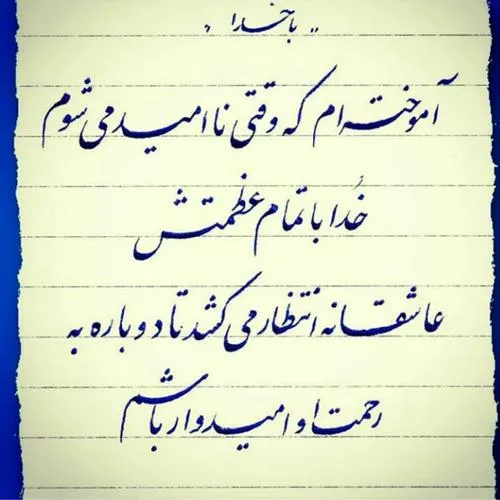 .. با خدا ..
آموخته ام که وقتی ناامید می شوم
خُدا با تمام عظمتش
عاشقانه انتظار می کشد تا دوباره به
رحمت او امیدوار باشم